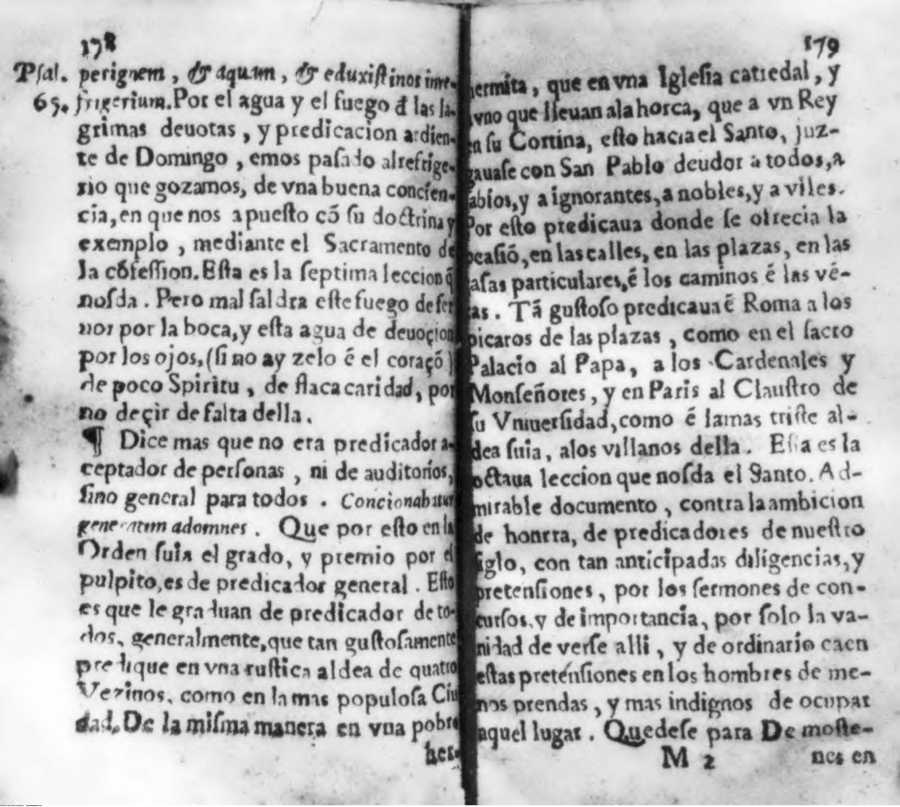 178
Psal. perignem, & aquam, & eduxistinos inre-
65. frigerium. Por el agua y el fuego đ las la-
grimas deuotas, y predicacion ardien-
te de Domingo, emos pasado alrefrige-
rio que gozamos, de vna buena concien-
cia, en que nos a puesto cō su doctrina y
exemplo, mediante el Sacramento de
la cōfession. Esta es la septima leccion q̄
nosda. Pero mal saldra este fuego de ser
nos por la boca, y esta agua de deuoçion
por los ojos, (si no ay zelo ē el coraçō)
de poco Spiritu, de flaca caridad, por
no deçir de falta della.
¶ Dice mas que no era predicador a-
ceptador de personas, ni de auditorios,
sino general para todos. Concionabatur
generatim adomnes. Que por esto en la
Orden suia el grado, y premio por el
pulpito, es de predicador general. Esto
es que le graduan de predicador de to-
dos, generalmente, que tan gustosamente
predique en vna rustica aldea de quatro
Vezinos, como en la mas populosa Ciu
dad. De la misma manera en vna pobre
her-
179
hermita, que en vna Iglesia catredal, y
a vno que lleuan ala horca, que a vn Rey
en su Cortina, esto hacia el Santo, juz-
gauase con San Pablo deudor a todos, a
sabios, y a ignorantes, a nobles, y a viles.
Por esto predicaua donde se ofrecia la
ocasiō, en las calles, en las plazas, en las
casas particulares, ē los caminos ē las vē-
tas. Tā gustoso predicaua ē Roma a los
picaros de las plazas, como en el sacro
Palacio al Papa, a los Cardenales y
Monseñores, y en Paris al Claustro de
su Vniuersidad, como ē lamas triste al-
dea suia, alos villanos della. Esta es la
octaua leccion que nosda el Santo. Ad-
mirable documento, contra la ambicion
de honrra, de predicadores de nuestro
siglo, con tan anticipadas diligencias, y
pretensiones, por los sermones de con-
cursos, y de importancia, por solo la va-
nidad de verse alli, y de ordinario caen
estas pretēsiones en los hombres de me-
nos prendas, y mas indignos de ocupar
aquel lugar. Quedese para De moste-
M 2 nes en